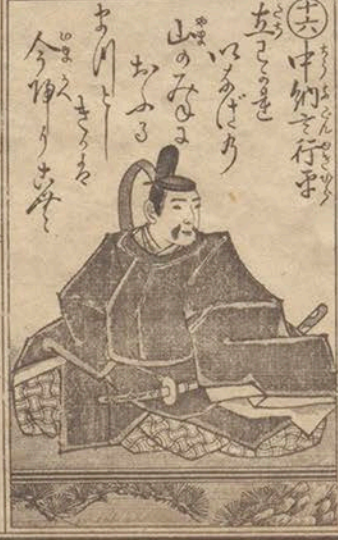 十六
中納言行平
立わかれ
いなばの
山のみねに
おふる
まつとし
きかは
今帰りこむ